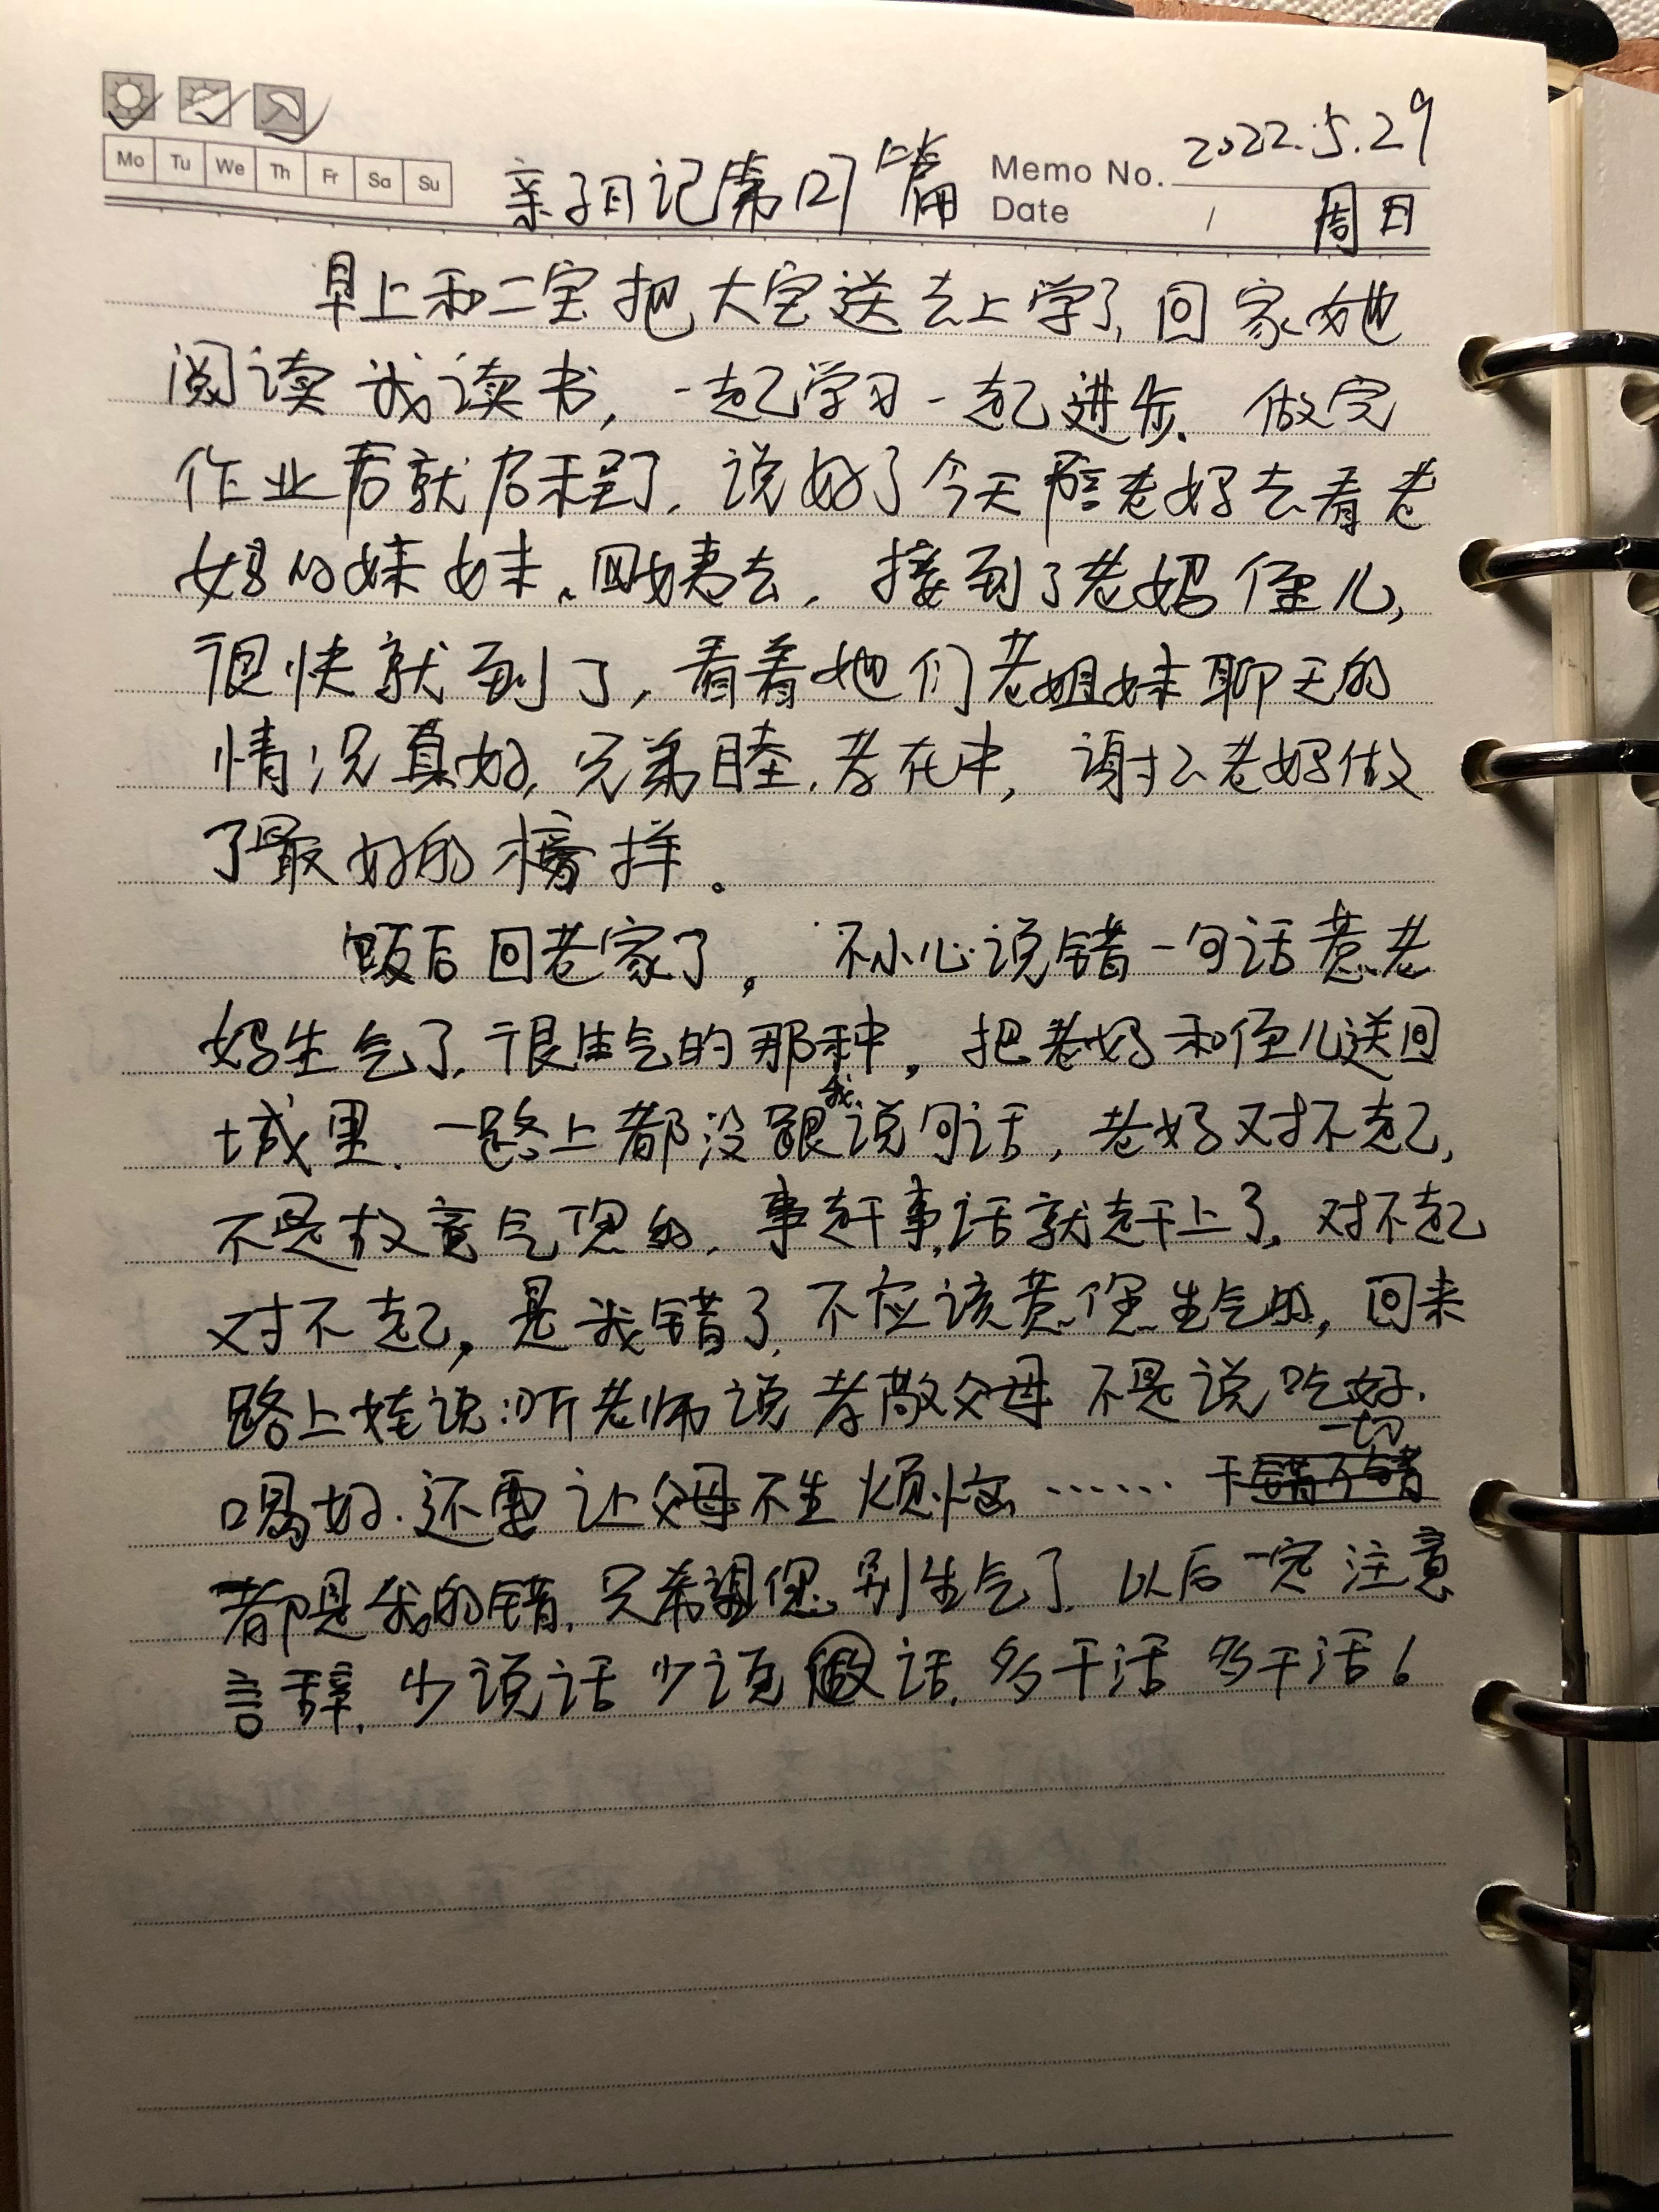 Mo Tu We Th Fr Sa Su
亲子日记第127篇
Memo No. 2022.5.29
Date / 周日
早上和二宝把大宝送去上学了,回家她
阅读我读书,一起学习一起进步.做完
作业后就启程了.说好了今天陪老妈去看老
妈的妹妹、四姨去.接到了老妈侄儿,
很快就到了,看着她们老姐妹聊天的
情况真好,兄弟睦.孝在中,谢谢老妈做
了最好的榜样。
饭后回老家了。不小心说错一句话惹老
妈生气了.很生气的那种,把老妈和侄儿送回
城里.一路上都没跟我说句话,老妈对不起,
不是故意气您的.事赶事,话就赶上了,对不起
对不起,是我错了,不应该惹您生气的,回来
路上娃说:听老师说孝敬父母不是说吃好.
喝好.还要让父母不生烦恼……千错万错一切
都是我的错,只希望您别生气了.以后一定注意
言辞.少说话少说做话.多干活多干活!